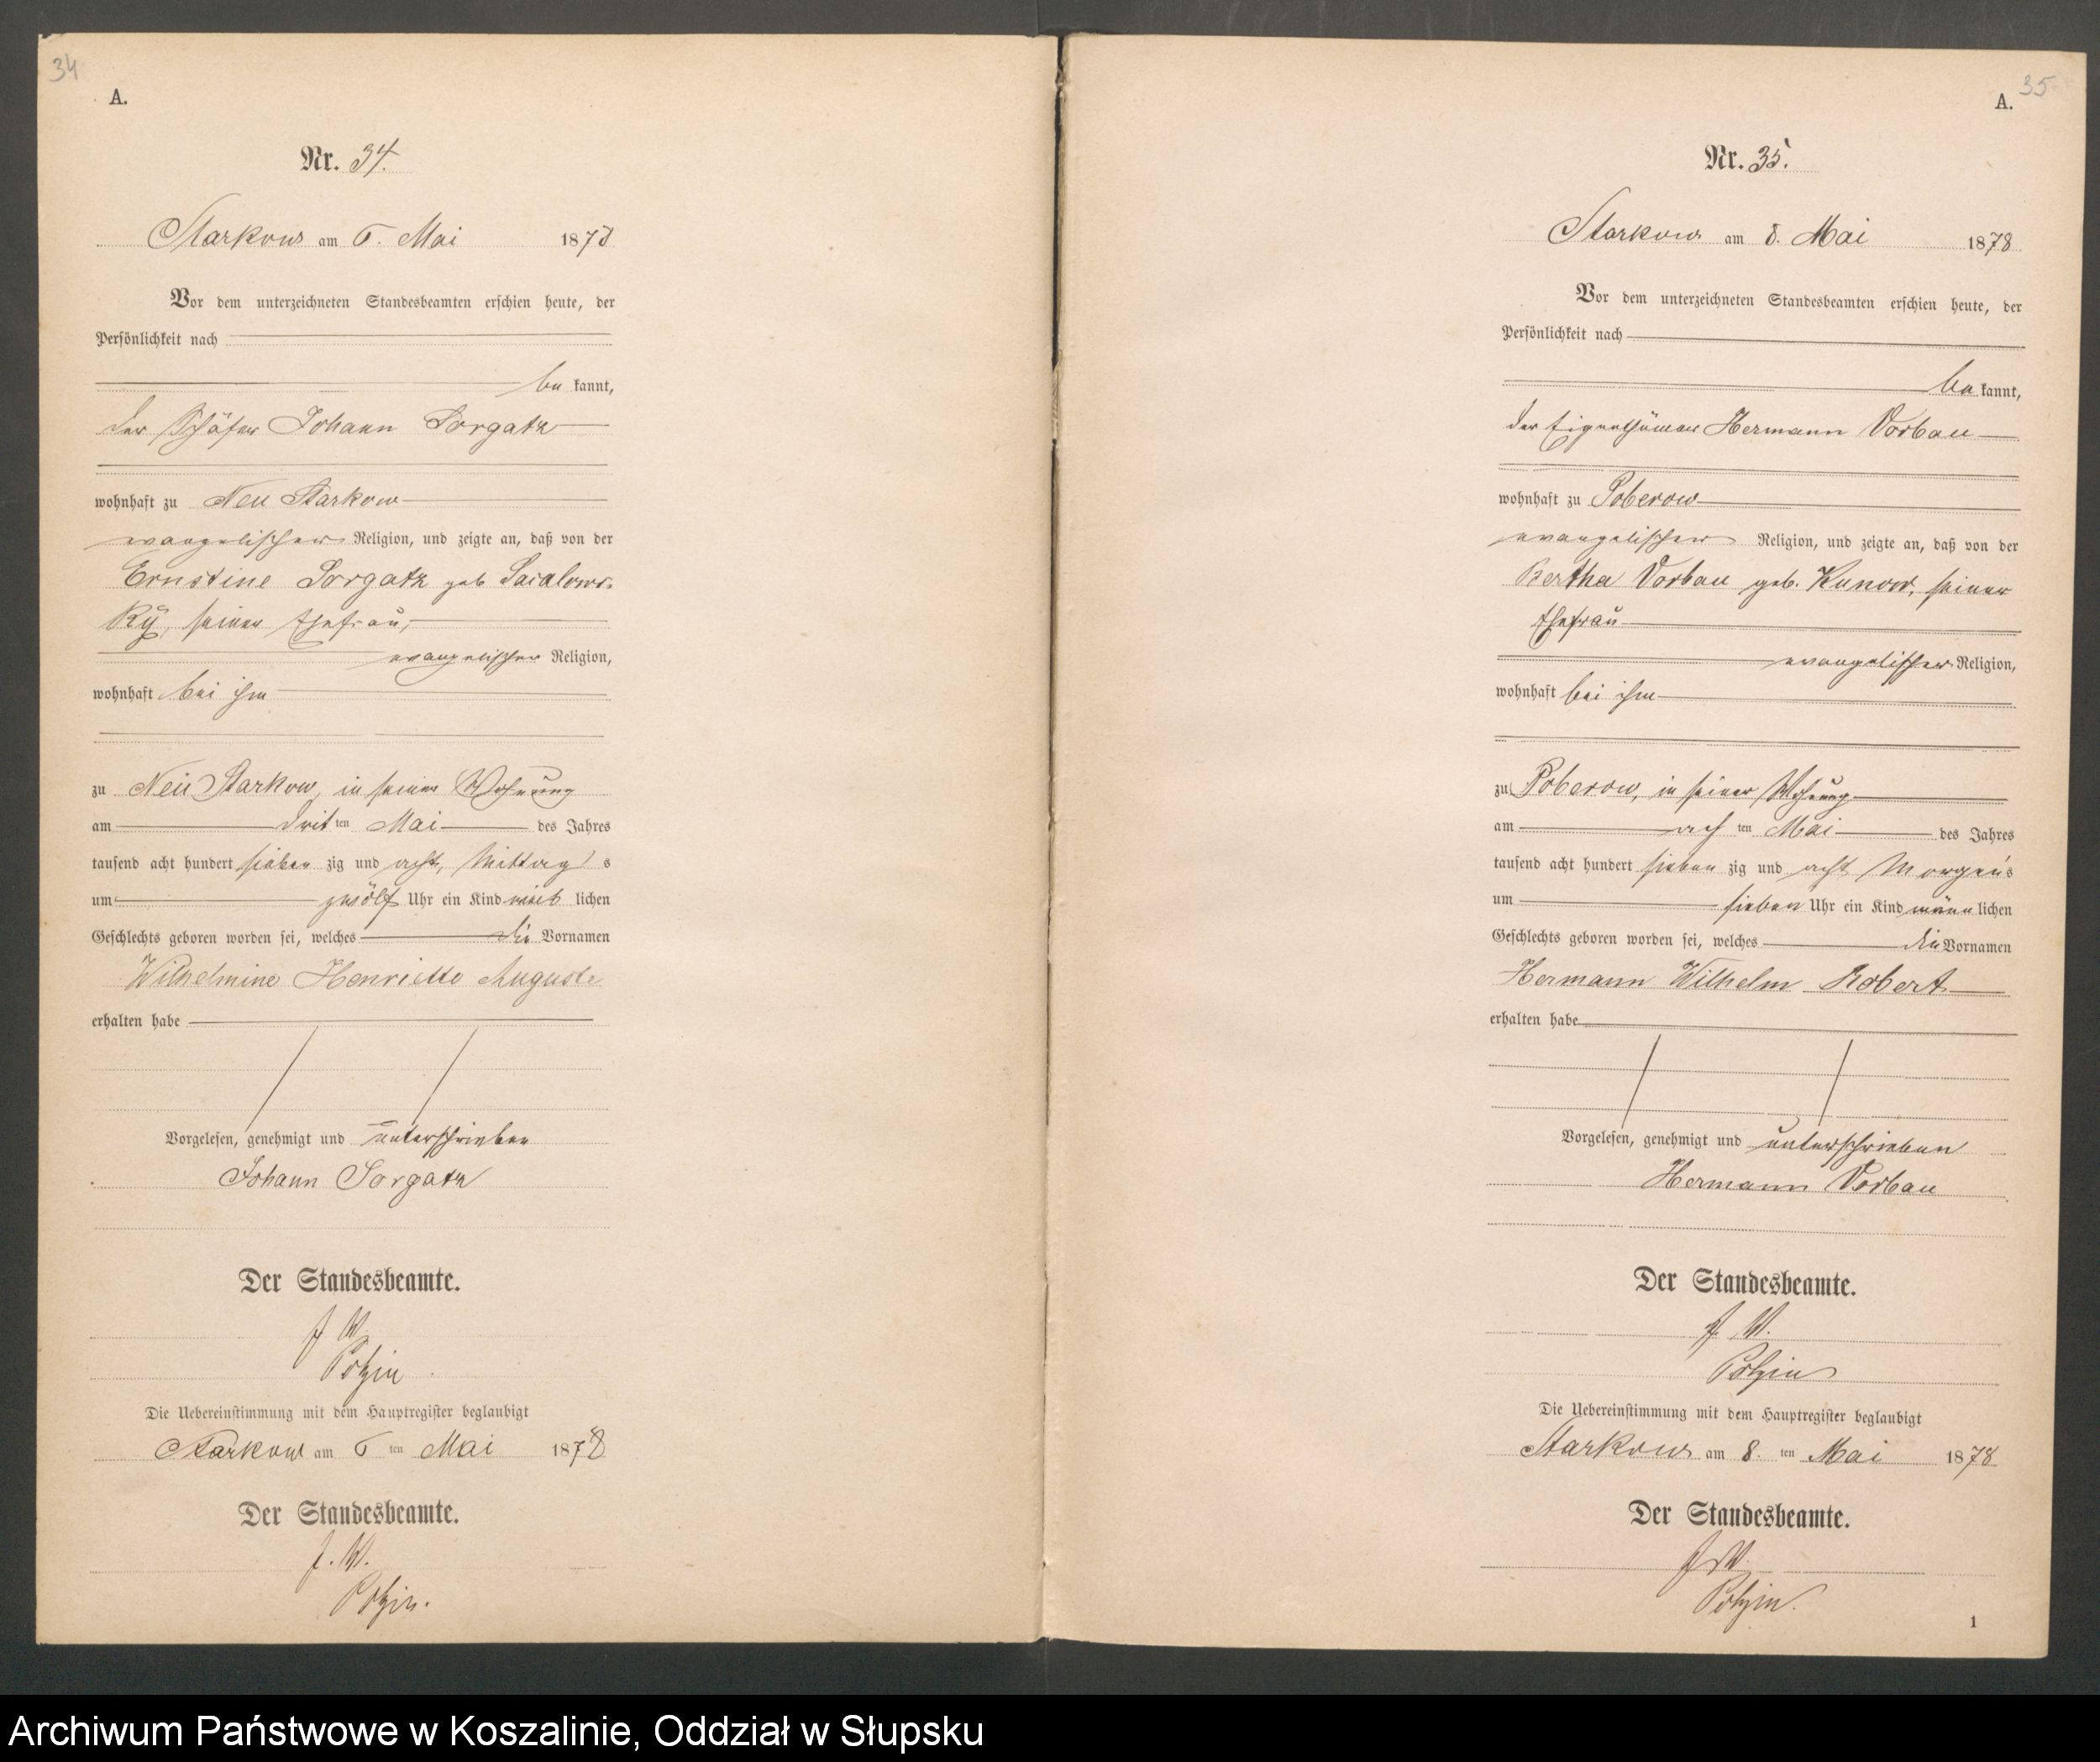 34
A.
Nr. 34.
Starkow am 6. Mai 1878
Vor dem unterzeichneten Standesbeamten erschien heute, der
Persönlichkeit nach
be kannt,
der Schäfer Johann Sorgatz
wohnhaft zu Neu Starkow
evangelischer Religion, und zeigte an, daß von der
Ernstine Sorgatz geb
ky, seiner Ehefrau,
evangelischer Religion,
wohnhaft bei ihm
zu Neu Starkow, in seiner Wohnung
am drit ten Mai des Jahres
tausend acht hundert sieben zig und acht, Mittag s
um zwölf Uhr ein Kind weib lichen
Geschlechts geboren worden sei, welches die Vornamen
Wilhelmine Henriette Auguste
erhalten habe
Vorgelesen, genehmigt und unterschrieben
Johann Sorgatz
Der Standesbeamte.
J. V.
Polzin
Die Uebereinstimmung mit dem Hauptregister beglaubigt
Starkow am 6 ten Mai 1878
Der Standesbeamte.
J. V.
Polzin.
35
A.
Nr. 35.
Starkow am 8. Mai 1878
Vor dem unterzeichneten Standesbeamten erschien heute, der
Persönlichkeit nach
be kannt,
der Eigenthümer Hermann Vorbau
wohnhaft zu Poberow
evangelischer Religion, und zeigte an, daß von der
Bertha Vorbau geb. Kunow, seiner
Ehefrau
evangelischer Religion,
wohnhaft bei ihm
zu Poberow, in seiner Wohnung
am ach ten Mai des Jahres
tausend acht hundert sieben zig und acht Morgens
um sieben Uhr ein Kind männ lichen
Geschlechts geboren worden sei, welches die Vornamen
Hermann Wilhelm Robert
erhalten habe
Vorgelesen, genehmigt und unterschrieben
Hermann Vorbau
Der Standesbeamte.
J. V.
Polzin
Die Uebereinstimmung mit dem Hauptregister beglaubigt
Starkow am 8. ten Mai 1878
Der Standesbeamte.
J. V.
Polzin.
1
Archiwum Państwowe w Koszalinie, Oddział w Słupsku